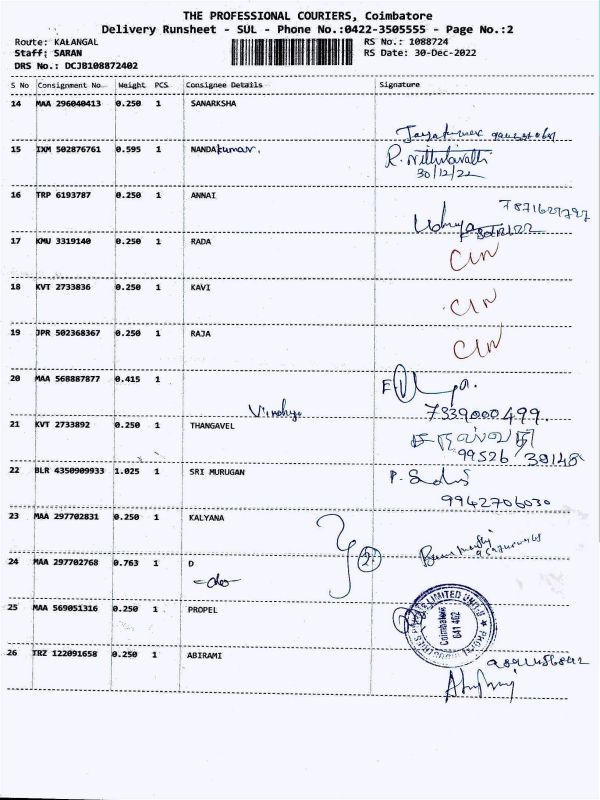 THE PROFESSIONAL COURIERS, Coimbatore
Delivery Runsheet - SUL - Phone No.:0422-3505555 - Page No.:2
Route: KALANGAL
Staff: SARAN
DRS No.: DCJB108872402
RS No.: 1088724
RS Date: 30-Dec-2022
S No Consignment No Weight PCS Consignee Details Signature
14 MAA 296040413 0.250 1 SANARKSHA
15 IXM 502876761 0.595 1 NANDAkumar.
30/12/22
16 TRP 6193787 0.250 1 ANNAI
17 KMU 3319140 0.250 1 RADA
18 KVT 2733836 0.250 1 KAVI
19 JPR 502368367 0.250 1 RAJA
20 MAA 568887877 0.415 1
7339000499
21 KVT 2733892 0.250 1 THANGAVEL
99526 30148
22 BLR 4350909933 1.025 1 SRI MURUGAN
9942706030
23 MAA 297702831 0.250 1 KALYANA
24 MAA 297702768 0.763 1 D
-do-
2
25 MAA 569051316 0.250 1 PROPEL
LIMITED UNIT-II
Coimbatore
641 402
26 TRZ 122091658 0.250 1 ABIRAMI